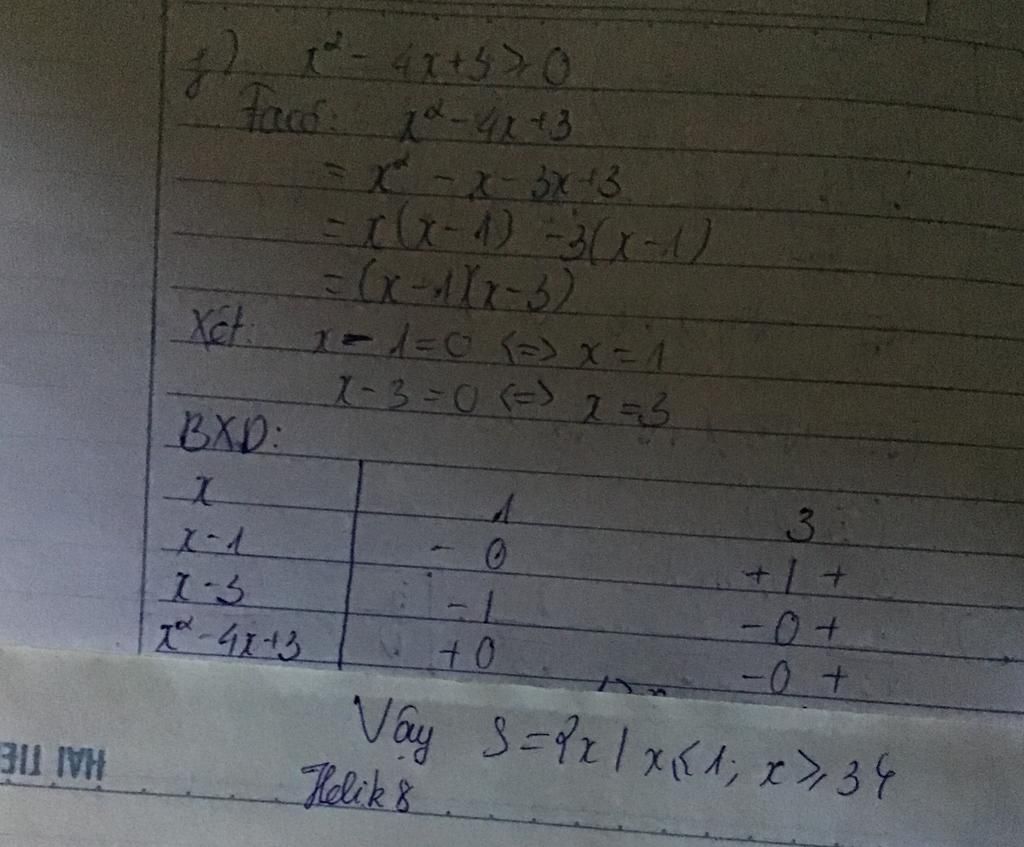 f) x² - 4x+3 ≥ 0
Taco: x² - 4x + 3
= x² - x - 3x + 3
= x(x-1) - 3(x-1)
= (x-1)(x-3)
Xét: x - 1 = 0 <=> x = 1
x - 3 = 0 <=> x = 3
BXD:
x 1 3
x-1 - 0 + | +
x-3 - | - 0 +
x² - 4x + 3 + 0 - 0 +
Vậy S = {x | x ≤ 1; x ≥ 3}
Helik 8
HẢI TIẾ